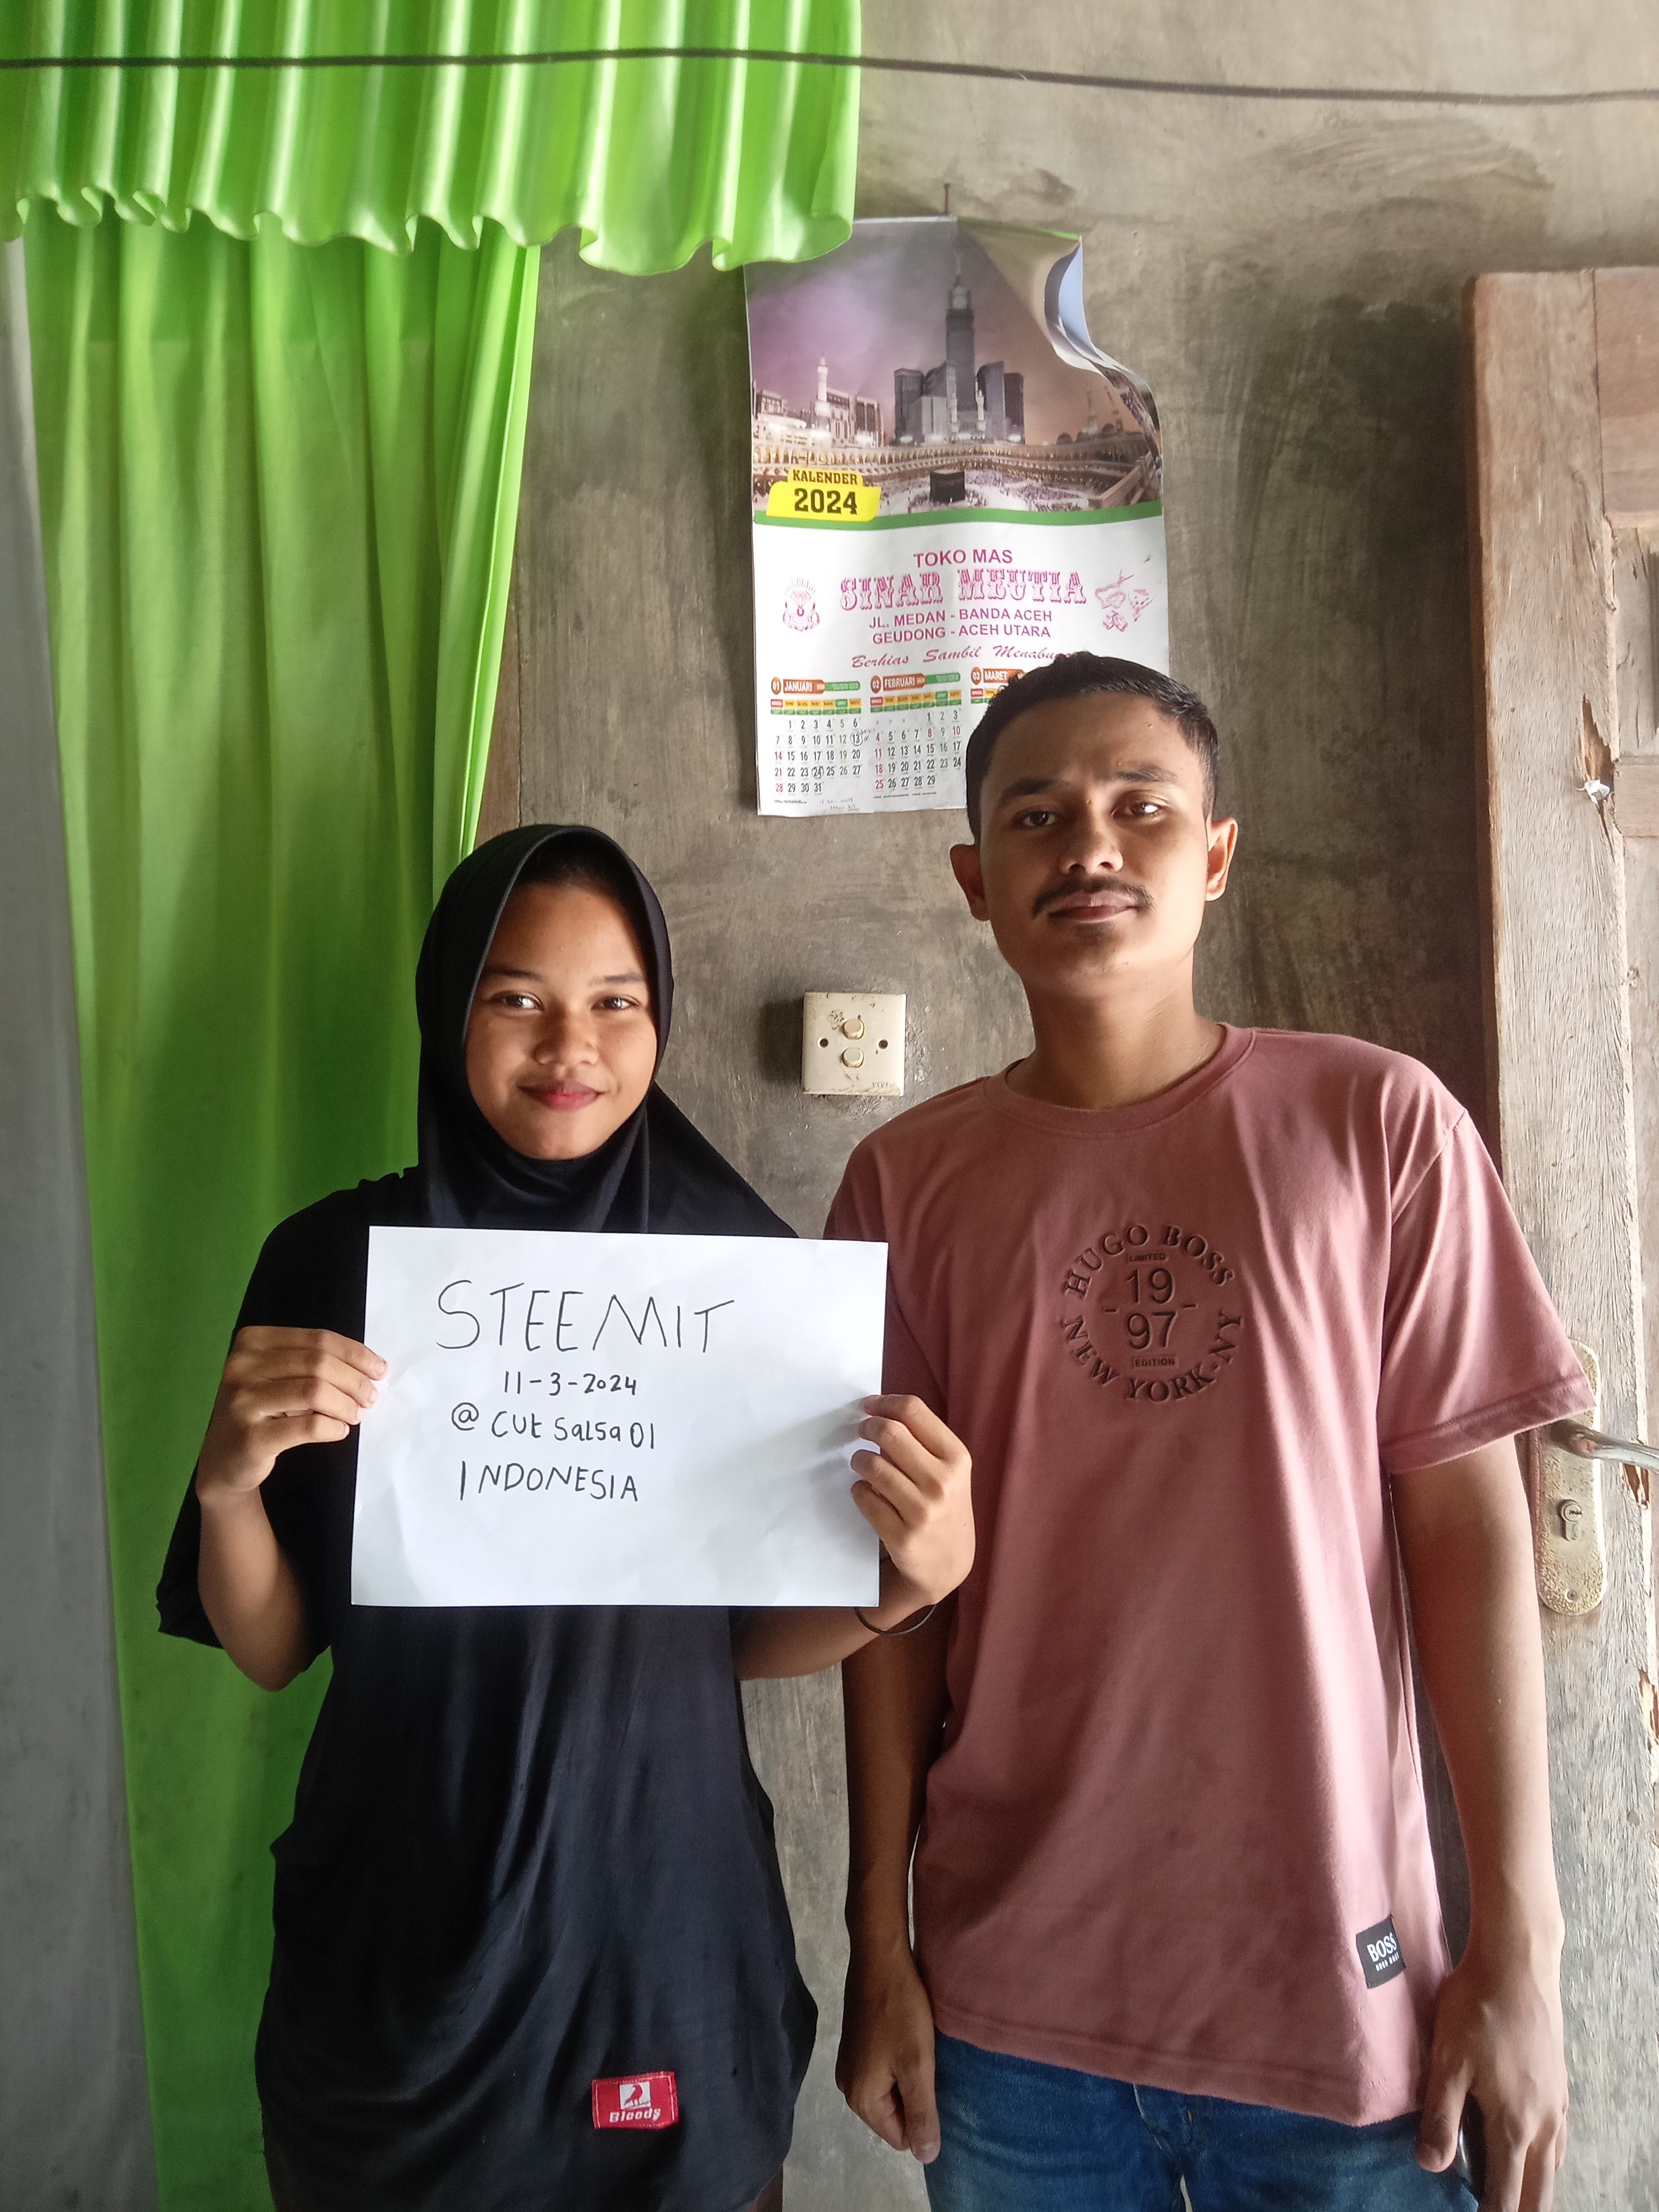 KALENDER
2024
TOKO MAS
SINAR MEUTIA
JL. MEDAN - BANDA ACEH
GEUDONG - ACEH UTARA
Berhias Sambil
01 JANUARI
02 FEBRUARI
03 MARET
1 2 3 4 5 6
7 8 9 10 11 12 13
14 15 16 17 18 19 20
21 22 23 24 25 26 27
28 29 30 31
1 2 3
4 5 6 7 8 9 10
11 12 13 14 15 16 17
18 19 20 21 22 23 24
25 26 27 28 29
STEEMIT
11-3-2024
@ CUt Salsa 01
INDONESIA
HUGO BOSS
LIMITED
19
97
EDITION
NEW YORK-NY
BOSS
Bloods